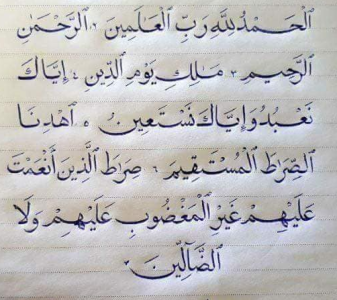 اَلْحَمْدُ لِلّٰهِ رَبِّ الْعَالَمِينَ ١ اَلرَّحْمٰنِ
الرَّحِيمِ ٢ مَالِكِ يَوْمِ الدِّينِ ٤ إِيَّاكَ
نَعْبُدُ وَإِيَّاكَ نَسْتَعِينُ ٥ اَهْدِنَا
الصِّرَاطَ الْمُسْتَقِيمَ ٦ صِرَاطَ الَّذِينَ أَنْعَمْتَ
عَلَيْهِمْ غَيْرِ الْمَغْضُوبِ عَلَيْهِمْ وَلَا
الضَّالِّينَ ٧